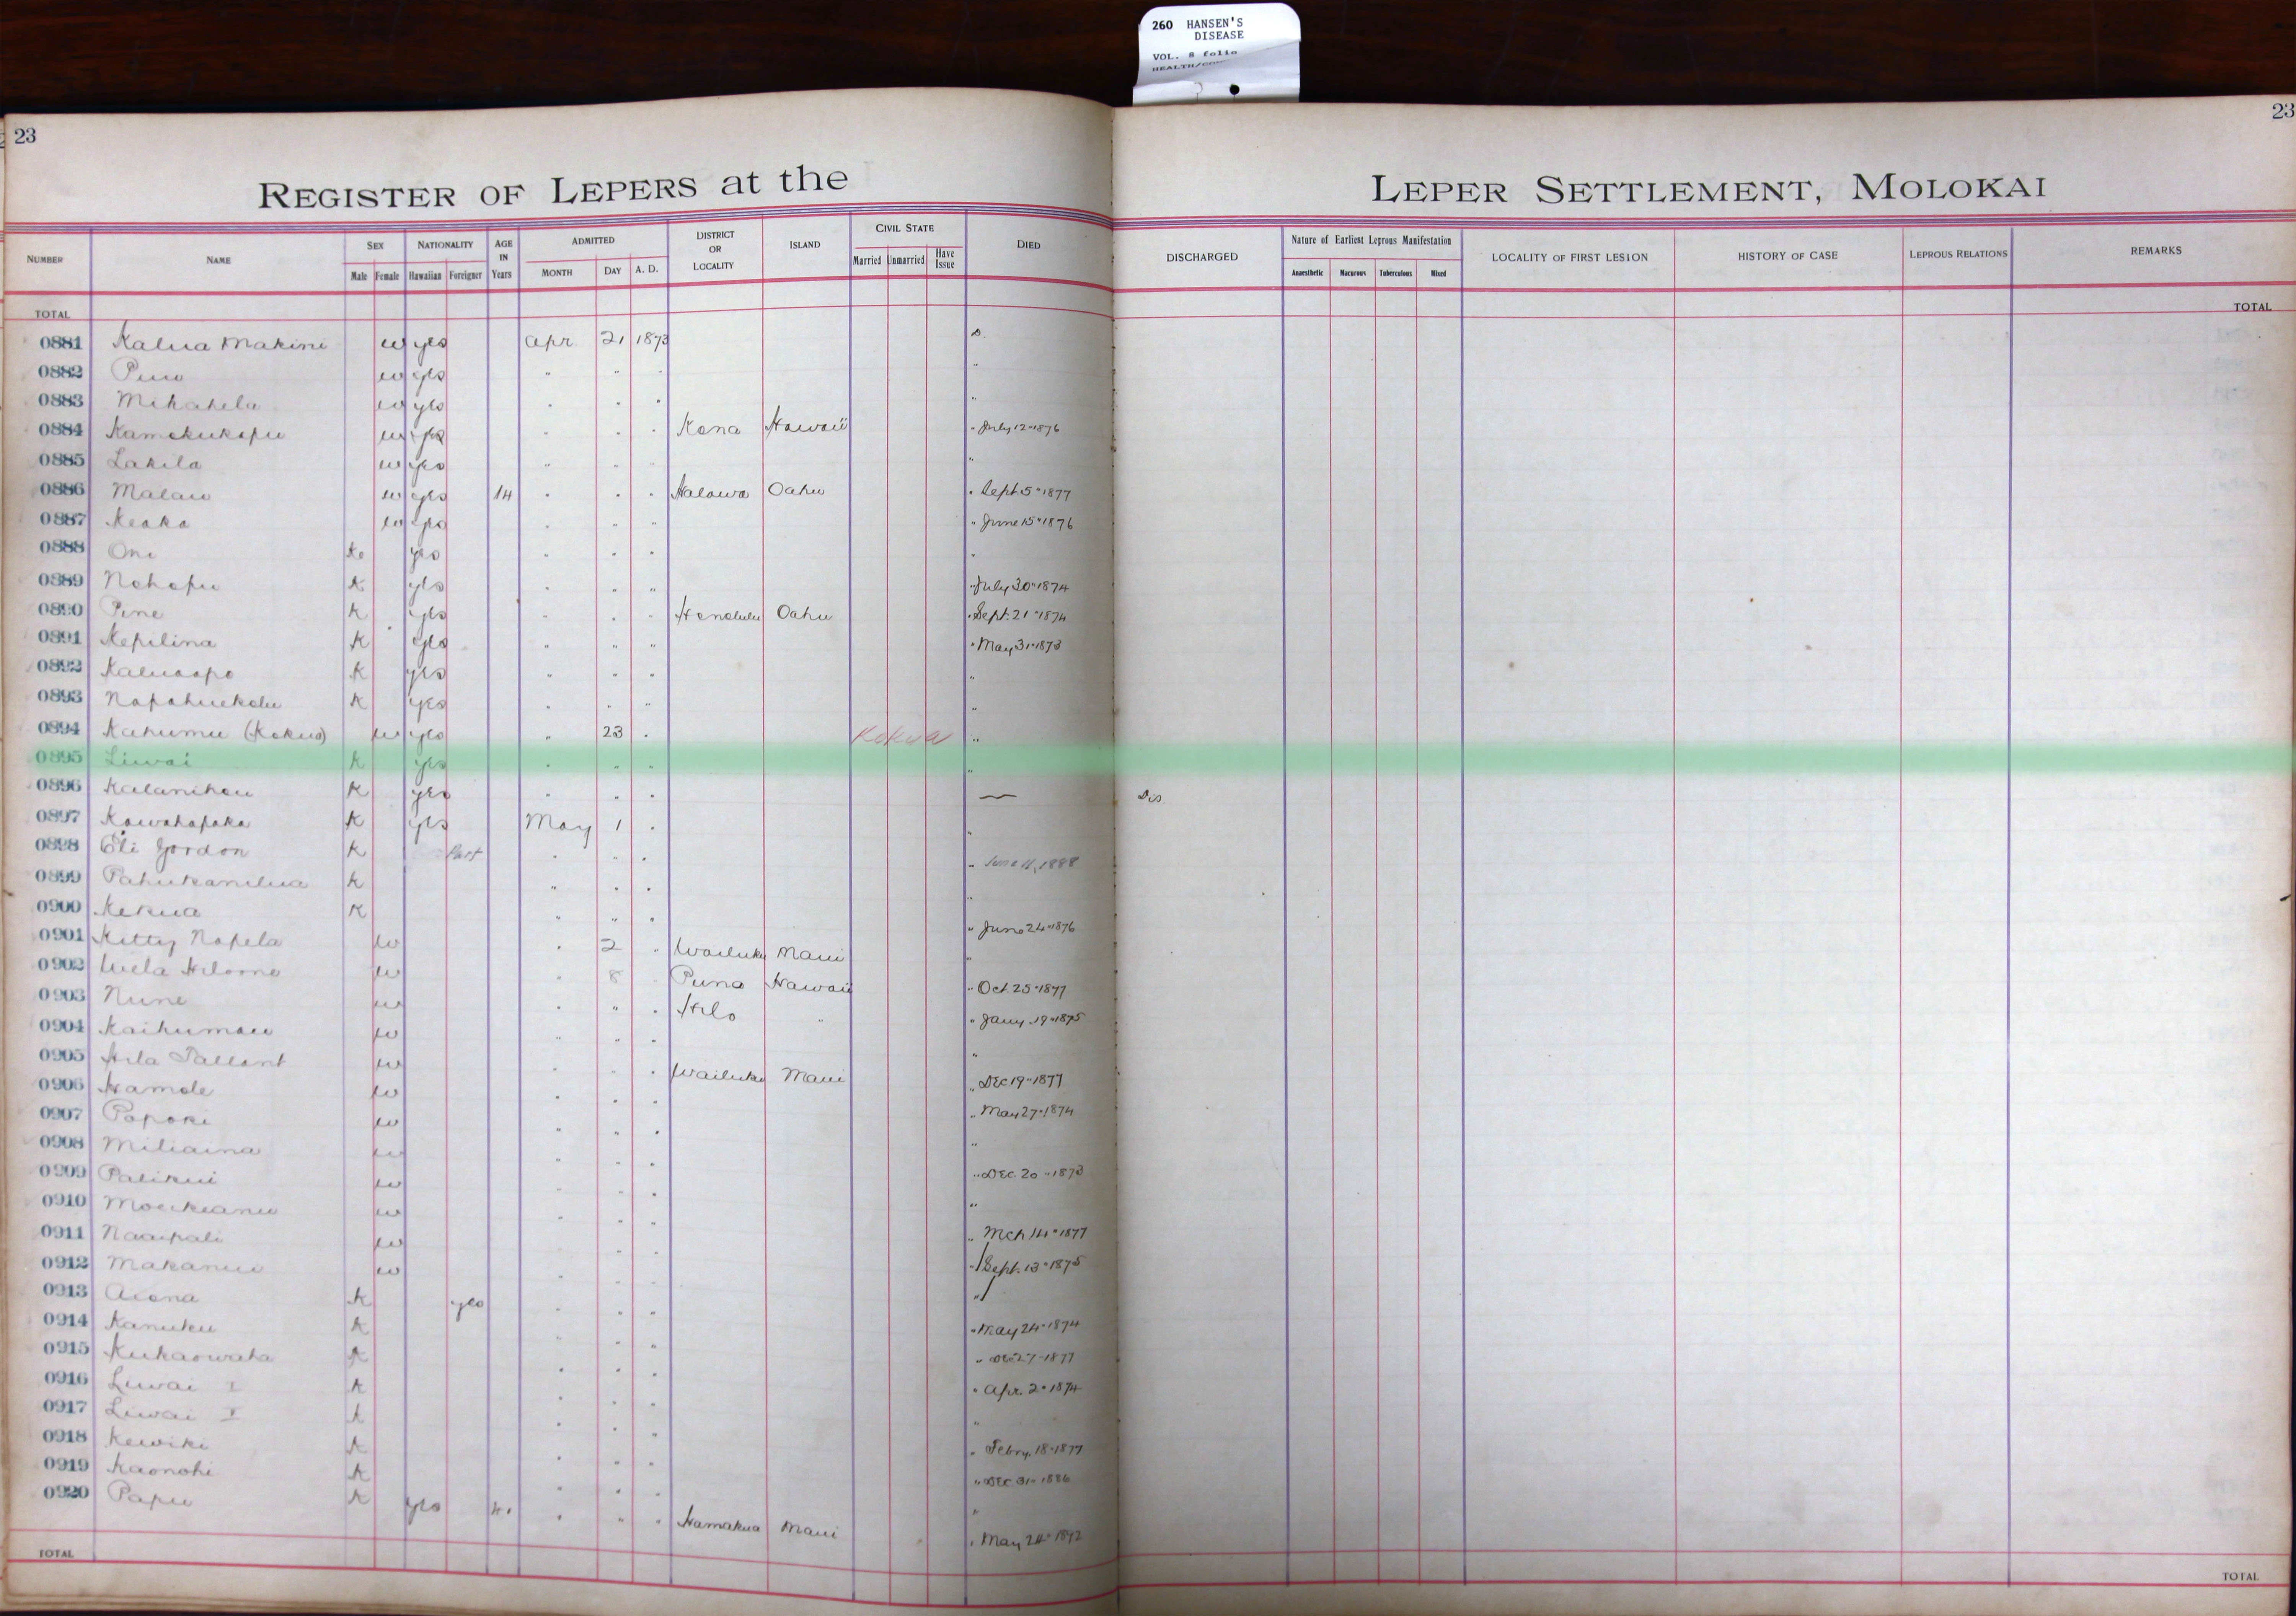 260 HANSEN'S
DISEASE
VOL. 8 folio
23
23
REGISTER OF LEPERS at the LEPER SETTLEMENT, MOLOKAI
NUMBER NAME SEX NATIONALITY AGE IN Years ADMITTED DISTRICT OR LOCALITY ISLAND CIVIL STATE DIED DISCHARGED Nature of Earliest Leprous Manifestation LOCALITY OF FIRST LESION HISTORY OF CASE LEPROUS RELATIONS REMARKS
Male Female Hawaiian Foreigner MONTH DAY A. D. Married Unmarried Have Issue Anaesthetic Macurous Tuberculous Mixed
TOTAL TOTAL
0881 Kalua Makini w yes Apr 21 1873 D.
0882 w yes " " " "
0883 Mikahela w yes " " " "
0884 Kamokukapu w yes " " " Kona Hawaii " July 12" 1876
0885 Lakila w yes " " " "
0886 Malau w yes 14 " " " Halawa Oahu " Sept. 5" 1877
0887 Keaka w yes " " " " June 15" 1876
0888 Oni K yes " " " "
0889 Nohopu K yes " " " " July 30" 1874
0890 Pine K yes " " " Honolulu Oahu " Sept. 21" 1874
0891 Kepilina K yes " " " " May 31" 1873
0892 K yes " " " "
0893 Napahuekolu K yes " " " "
0894 Kahumu (Kokua) w yes " 23 " Kokua "
0895 Liwai K yes " " " "
0896 Kalanihou K yes " " " — Dis
0897 Kawahapaka K yes May 1 " "
0898 Eli Gordon K Part " " " " June 11, 1888
0899 Pahukanilua K " " " "
0900 Kekua K " " " " June 24" 1876
0901 Kitty Napela w " 2 " Wailuku Maui "
0902 w " 8 " Puna Hawaii " Oct. 25" 1877
0903 Nune w " " " Hilo " " Jany. 19" 1875
0904 Kaihumau w " " " "
0905 Hila Tallant w " " " Wailuku Maui " Dec 19" 1877
0906 Hamole w " " " " May 27" 1874
0907 Papoki w " " " "
0908 Miliaina w " " " " Dec. 20" 1873
0909 Palikui w " " " "
0910 Moeikeanu w " " " " Mch 14" 1877
0911 Naaipali w " " " " Sept. 13" 1875
0912 Makanui w " " " "
0913 Aiona K yes " " " " May 24" 1874
0914 Kanuku K " " " 1877
0915 Kukaowaha K " " " " Apr. 2" 1874
0916 Liwai I K " " " "
0917 Liwai K " " " " Febry. 18" 1877
0918 Kewiki K " " " " Dec. 31" 1886
0919 Kaonohi K " " " "
0920 Papu K yes " " " Hamakua Maui " May 24"
TOTAL TOTAL